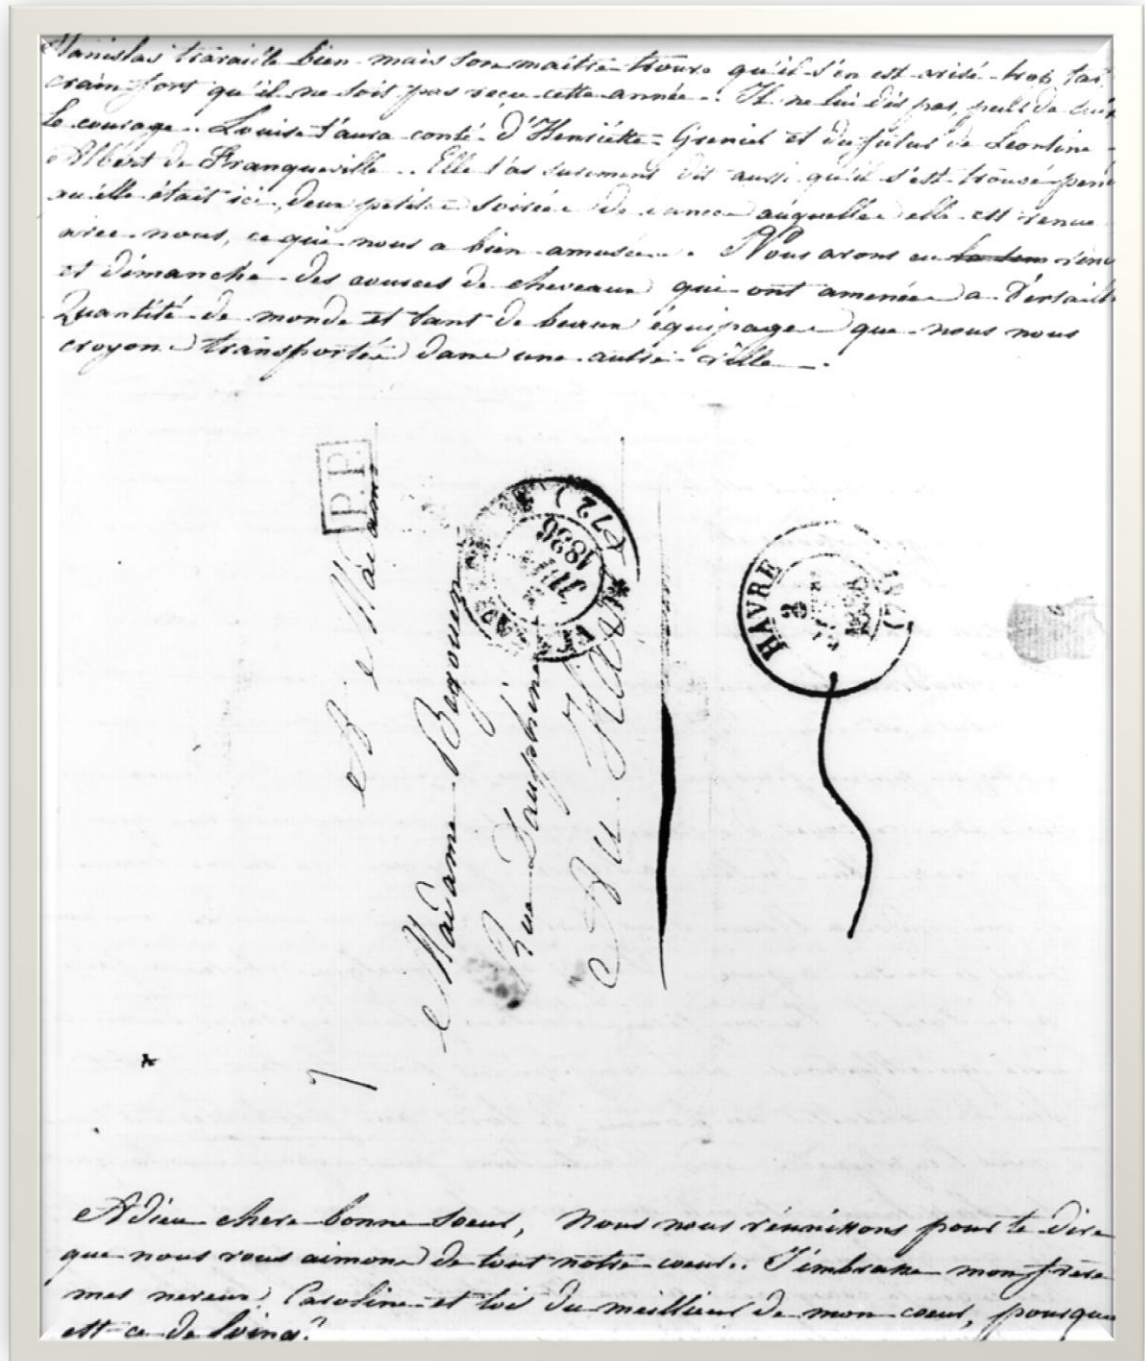 Stanislas travaille bien mais son maitre trouve qu'il s'en est avisé trop tar
crain fort qu'il ne soit pas recu cette année. Il ne lui dis pas, puit de
le courage. Louise t'aura conté d'Henriette Greniel et du futur de Leontine
Albert de Franqueville .. Elle t'as surement dit aussi qu'il s'est trouvé pen
qu'elle était ici, deux petites soirées de danse auquelles elle est venue
avec nous, ce qui nous a bien amusées. Nous avons eu
et dimanche des courses de cheveaux qui ont amenées a Versaill
Quantité de monde et tant de beaux équipages que nous nous
croyons transportées dans une autre ville.
P.P.
B Madame
Madame Begouen
Rue Dauphine
Au Havre
(72) JUIN 1836
HAVRE 3 (74)
Adieu chere bonne soeur, Nous nous réunissons pour te dire
que nous vous aimons de tout notre coeur. J'embrasse mon frère
mes neveux, Caroline et toi du meilleur de mon coeur, pourquoi
est-ce de loins?